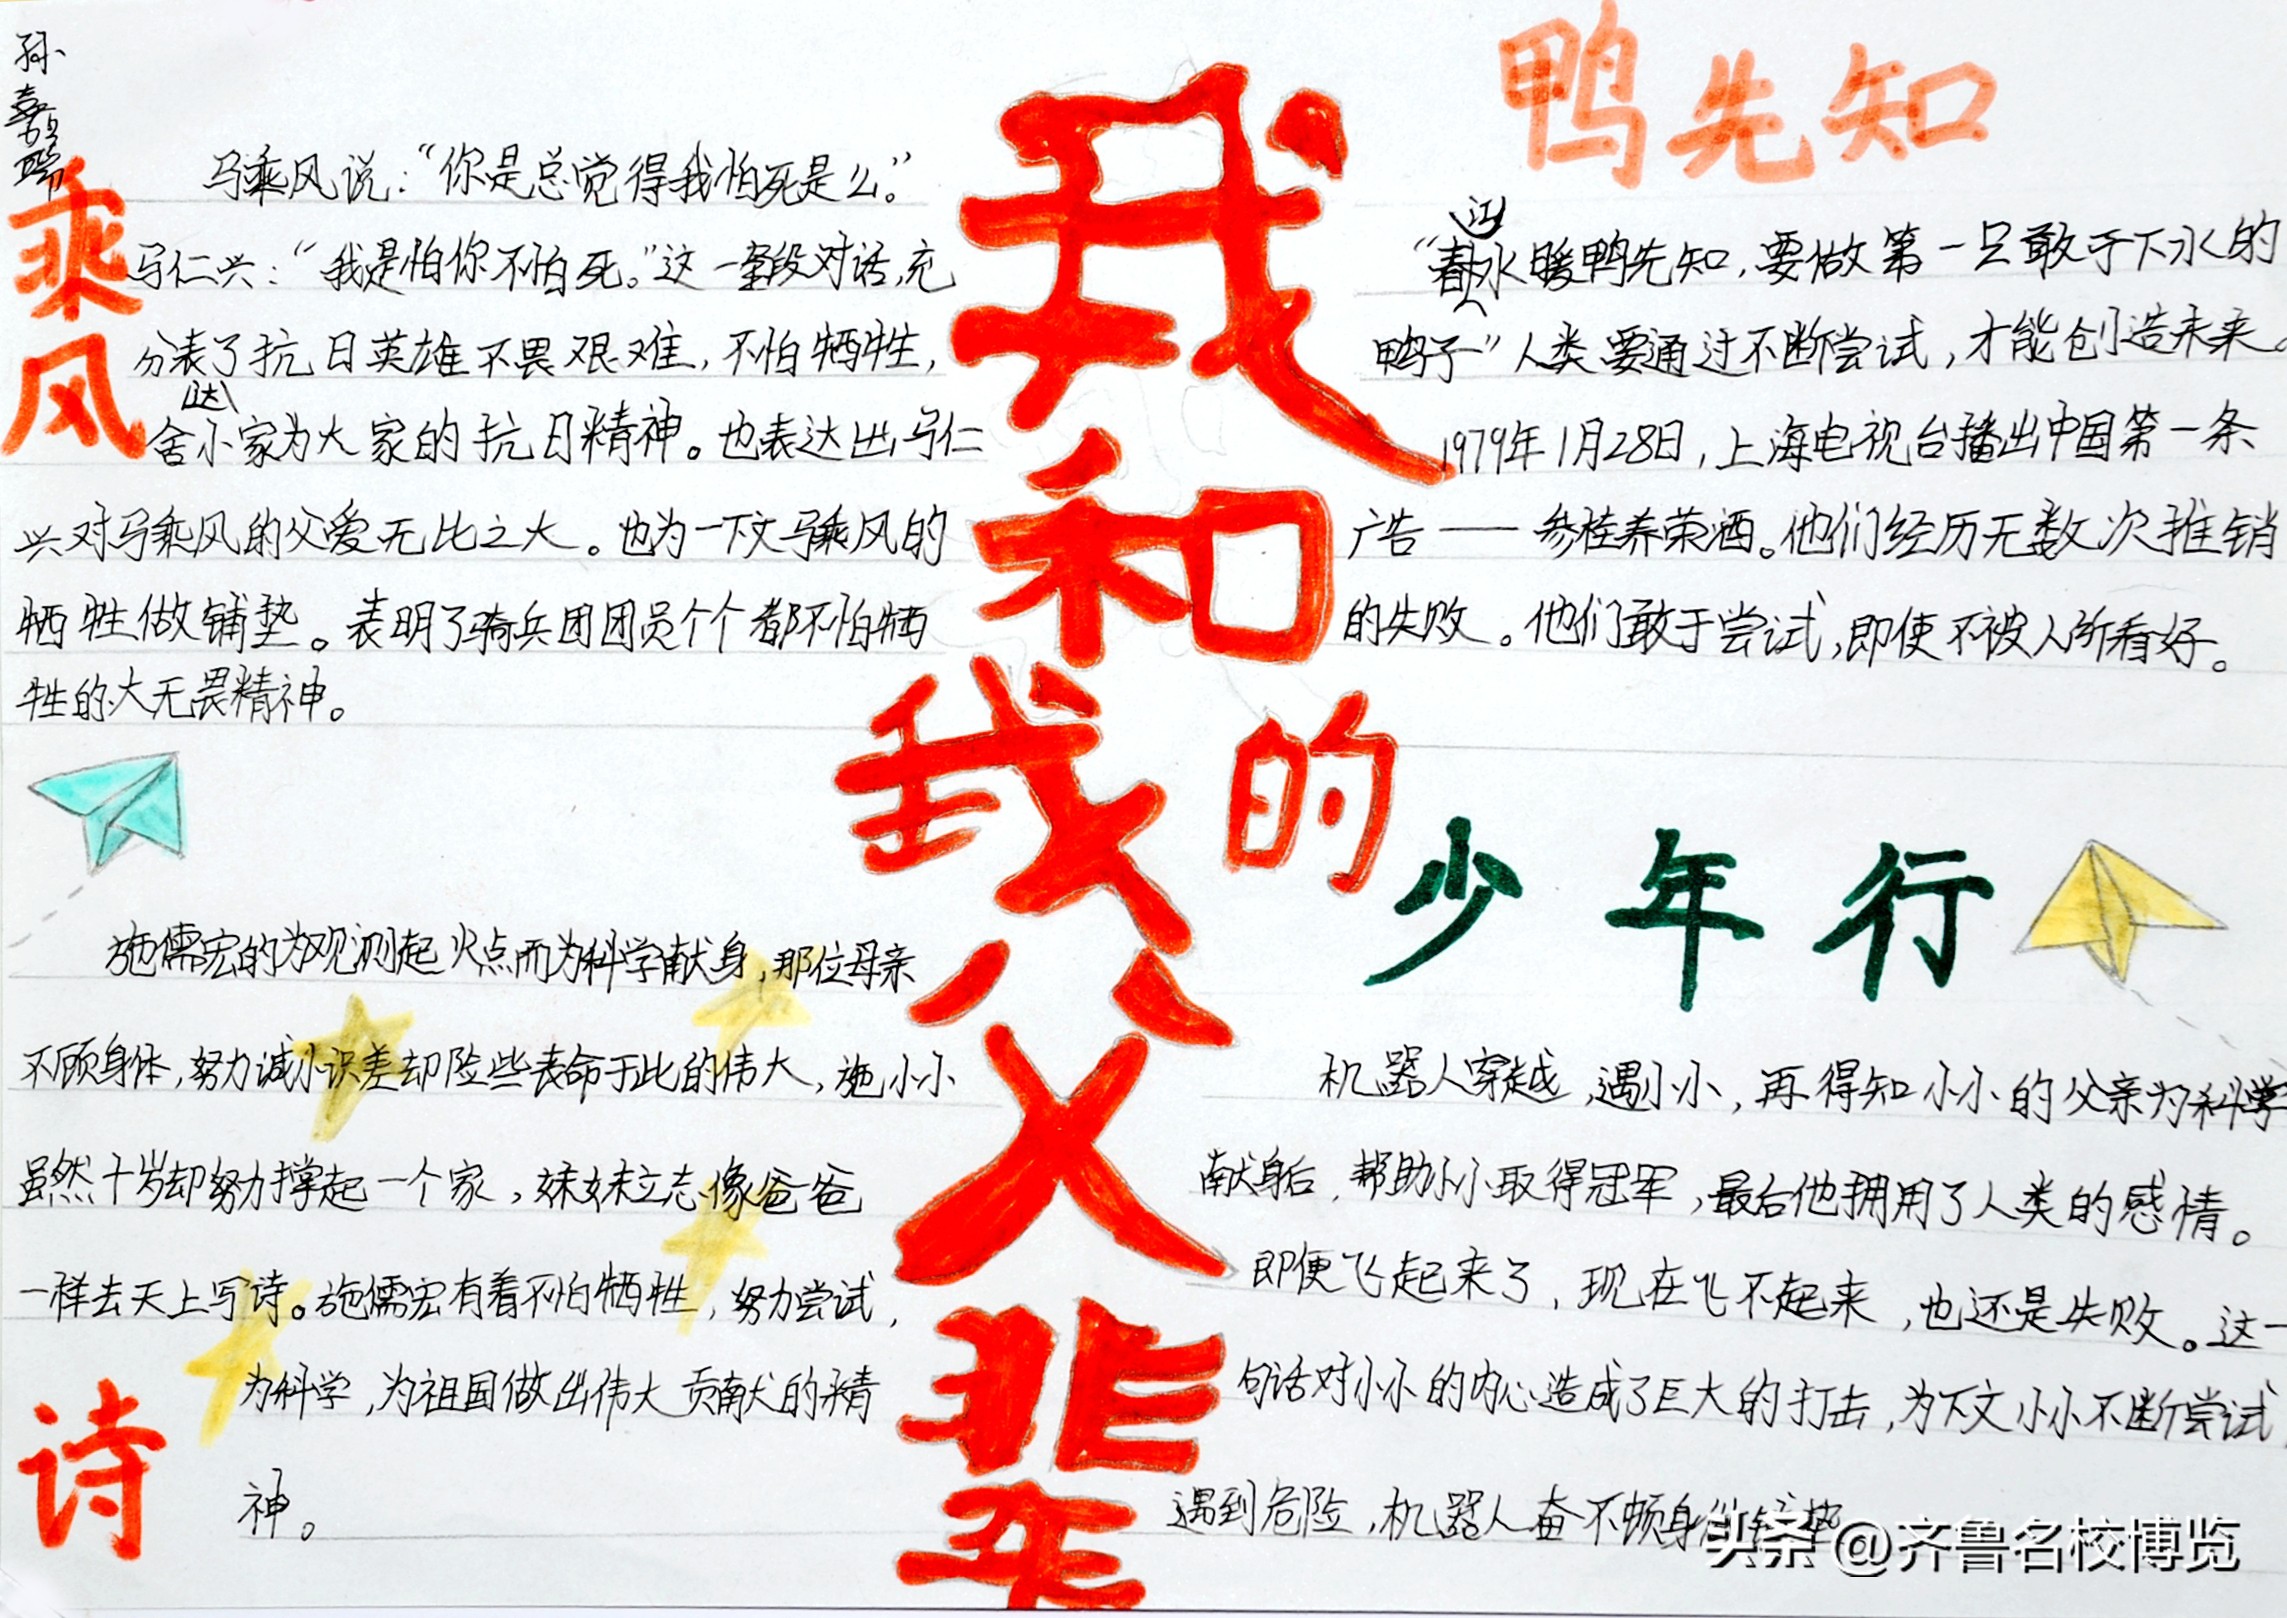 孙
嘉
聪
乘风
马乘风说：“你是总觉得我怕死是么。”
马仁兴：“我是怕你不怕死。”这一段对话，充
分表达了抗日英雄不畏艰难，不怕牺牲，
舍小家为大家的抗日精神。也表达出马仁
兴对马乘风的父爱无比之大。也为一下文马乘风的
牺牲做铺垫。表明了骑兵团团员个个都不怕牺
牲的大无畏精神。
我和我的父辈
鸭先知
“春江水暖鸭先知，要做第一只敢于下水的
鸭子”人类要通过不断尝试，才能创造未来。
1979年1月28日，上海电视台播出中国第一条
广告——参桂养荣酒。他们经历无数次推销
的失败。他们敢于尝试，即使不被人所看好。
诗
施儒宏的为观测起火点而为科学献身，那位母亲
不顾身体，努力减小误差却险些丧命于此的伟大，施小小
虽然十岁却努力撑起一个家，妹妹立志像爸爸
一样去天上写诗。施儒宏有着不怕牺牲，努力尝试，
为科学，为祖国做出伟大贡献的精
神。
少年行
机器人穿越，遇小小，再得知小小的父亲为科学
献身后，帮助小小取得冠军，最后他拥用了人类的感情。
即便飞起来了，现在飞不起来，也还是失败。这一
句话对小小的内心造成了巨大的打击，为下文小小不断尝试，
遇到危险，机器人奋不顾身做铺垫
头条@齐鲁名校博览